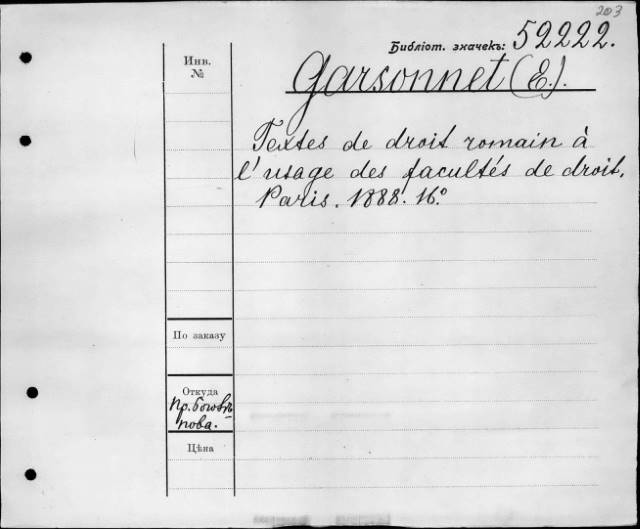 203
Библіот. значекъ: 52222.
Инв.
№
Garsonnet (E.).
Textes de droit romain à
l'usage des facultés de droit.
Paris. 1888. 16°
По заказу
Откуда
Пр.
пова.
Цѣна